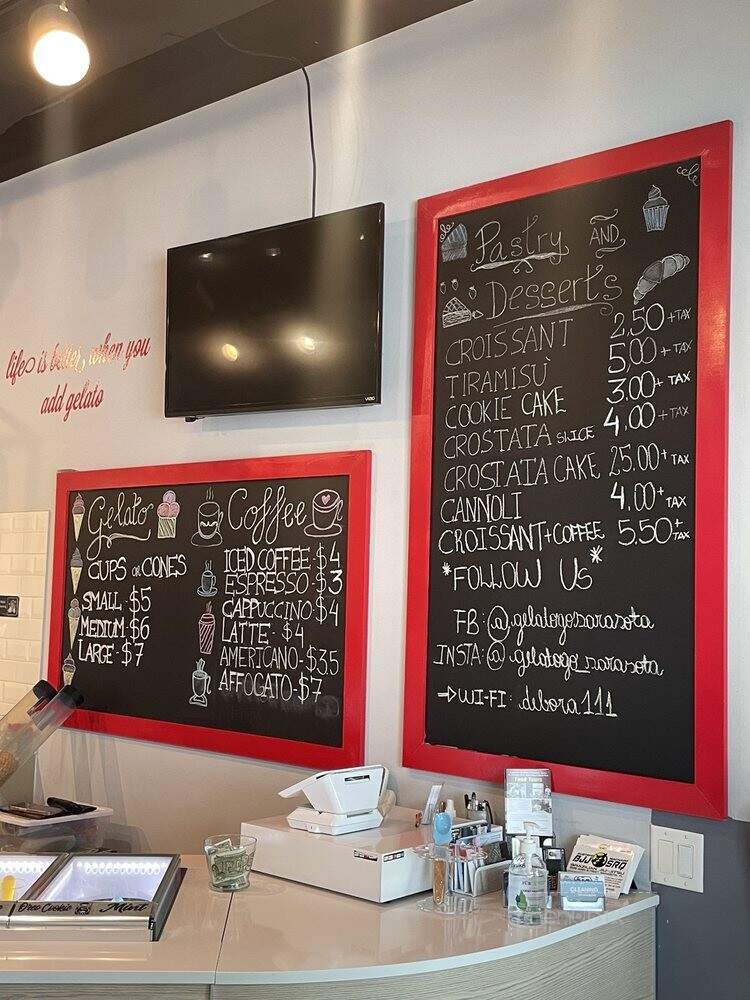 life is better when you
add gelato
VIZIO
Gelato
CUPS or CONES
SMALL $5
MEDIUM $6
LARGE $7
Coffee
ICED COFFEE-$4
ESPRESSO-$3
CAPPUCCINO-$4
LATTE-$4
AMERICANO-$3.5
AFFOGATO-$7
Pastry AND
Desserts
CROISSANT 2,50+TAX
TIRAMISÙ 5,00+TAX
COOKIE CAKE 3,00+TAX
CROSTATA SLICE 4,00+TAX
CROSTATA CAKE 25,00+TAX
CANNOLI 4,00+TAX
CROISSANT+COFFEE 5,50+TAX
*FOLLOW US*
FB:@gelatogosarasota
INSTA:@gelatogo_sarasota
→WI-FI: debora111
Food Tours
BJJ SRQ
CLEANING
Oreo Cookie
Mint